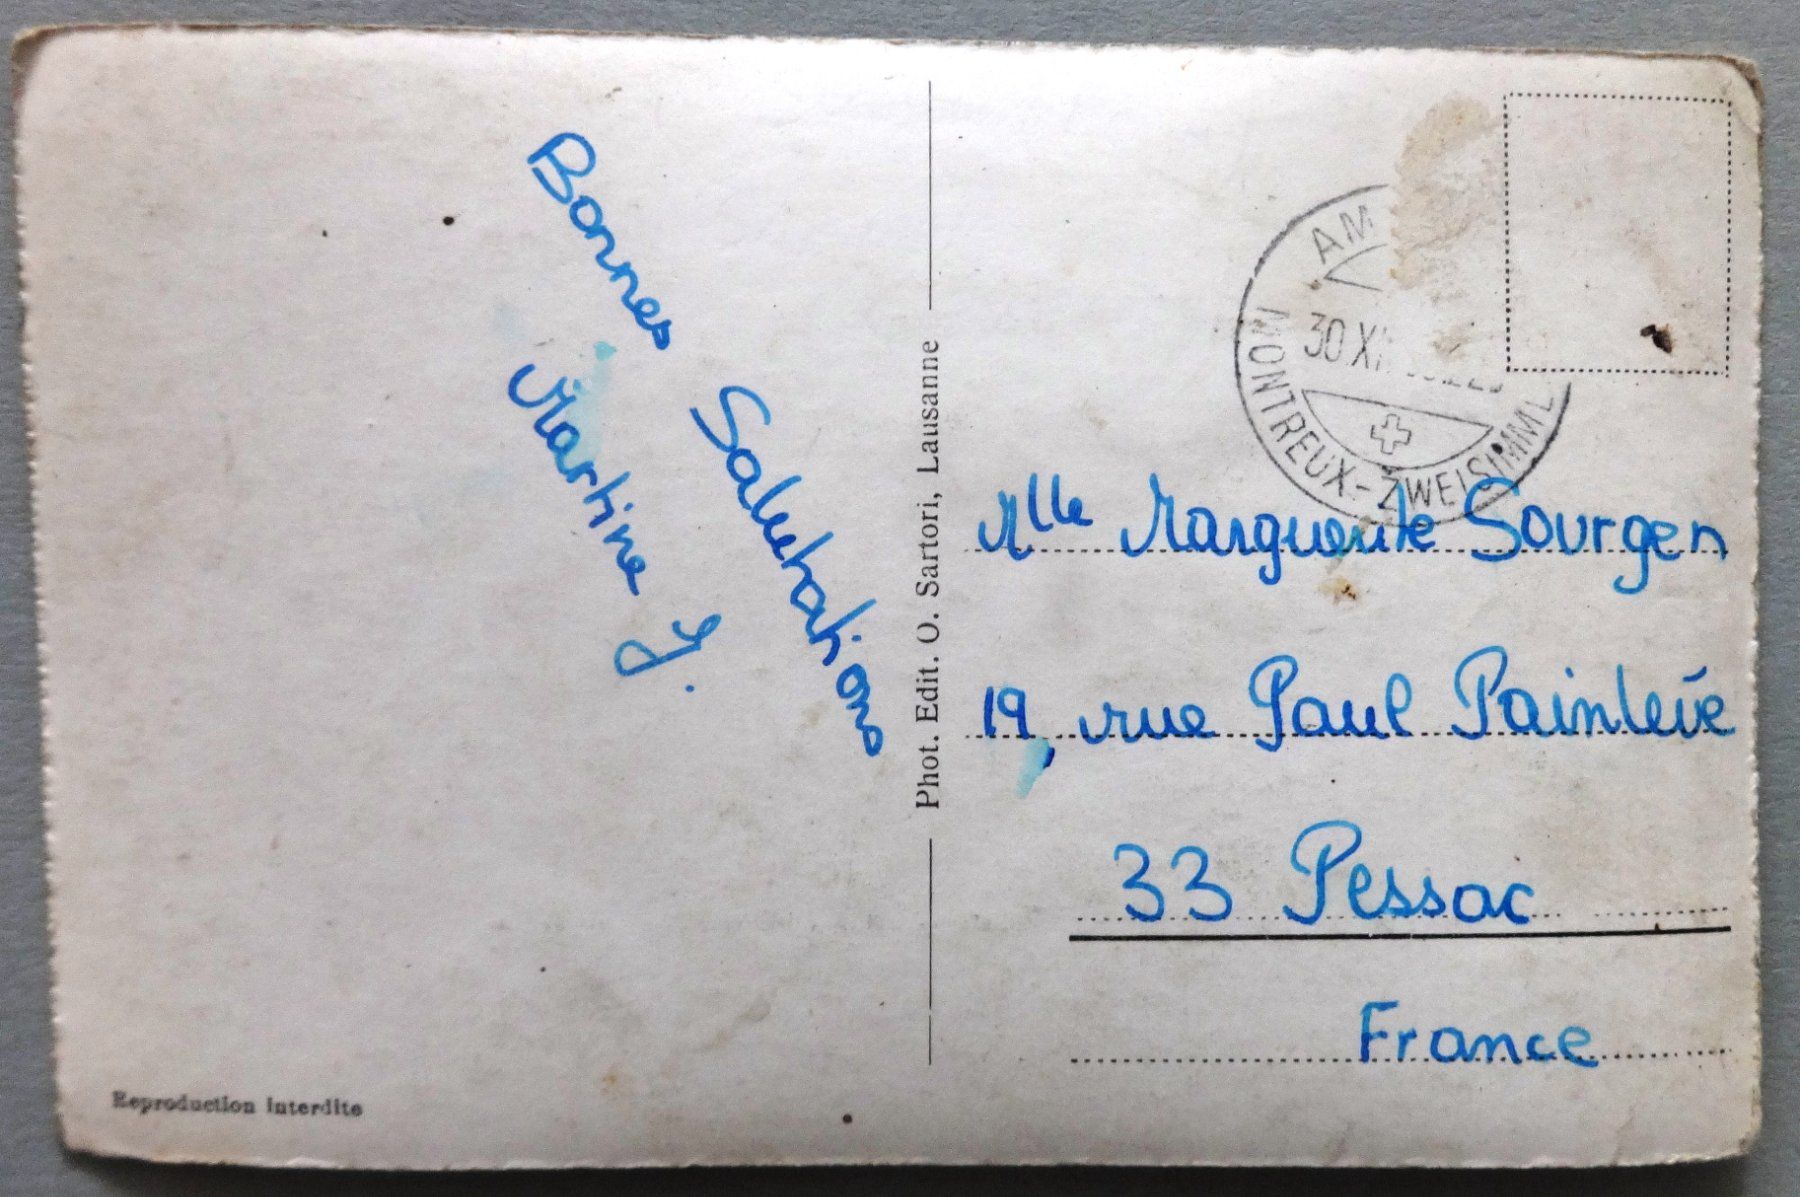 Bonnes Salutations
Martine J.
Reproduction interdite
Phot. Edit. O. Sartori, Lausanne
AM
30 XI
MONTREUX-ZWEISIMM
Mlle Marguerite Sourgen
19, rue Paul Painlevé
33 Pessac
France